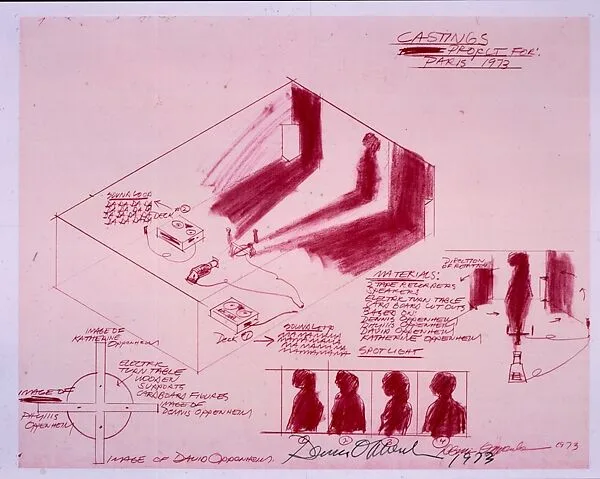 CASTINGS
PROJECT FOR:
PARIS 1973
SOUND LOOP
LA LA LA LA
LA LA LA LA
LA LA LA LA
DECK 2
DIRECTION
OF ROTATION
MATERIALS:
2 TAPE RECORDERS
SPEAKERS
ELECTRIC TURN TABLE
CARD BOARD CUT OUTS
BASED ON:
DENNIS OPPENHEIM
PHYLLIS OPPENHEIM
DAVID OPPENHEIM
KATHERINE OPPENHEIM
SPOTLIGHT
DECK 1
SOUND LOOP
MA MA MA MA
IMAGE OF
KATHERINE
OPPENHEIM
ELECTRIC
TURN TABLE
WOODEN
SUPPORTS
CARDBOARD FIGURES
IMAGE OF
DENNIS OPPENHEIM
IMAGE OF
PHYLLIS
OPPENHEIM
IMAGE OF DAVID OPPENHEIM
2 4
Dennis Oppenheim 1973
1973